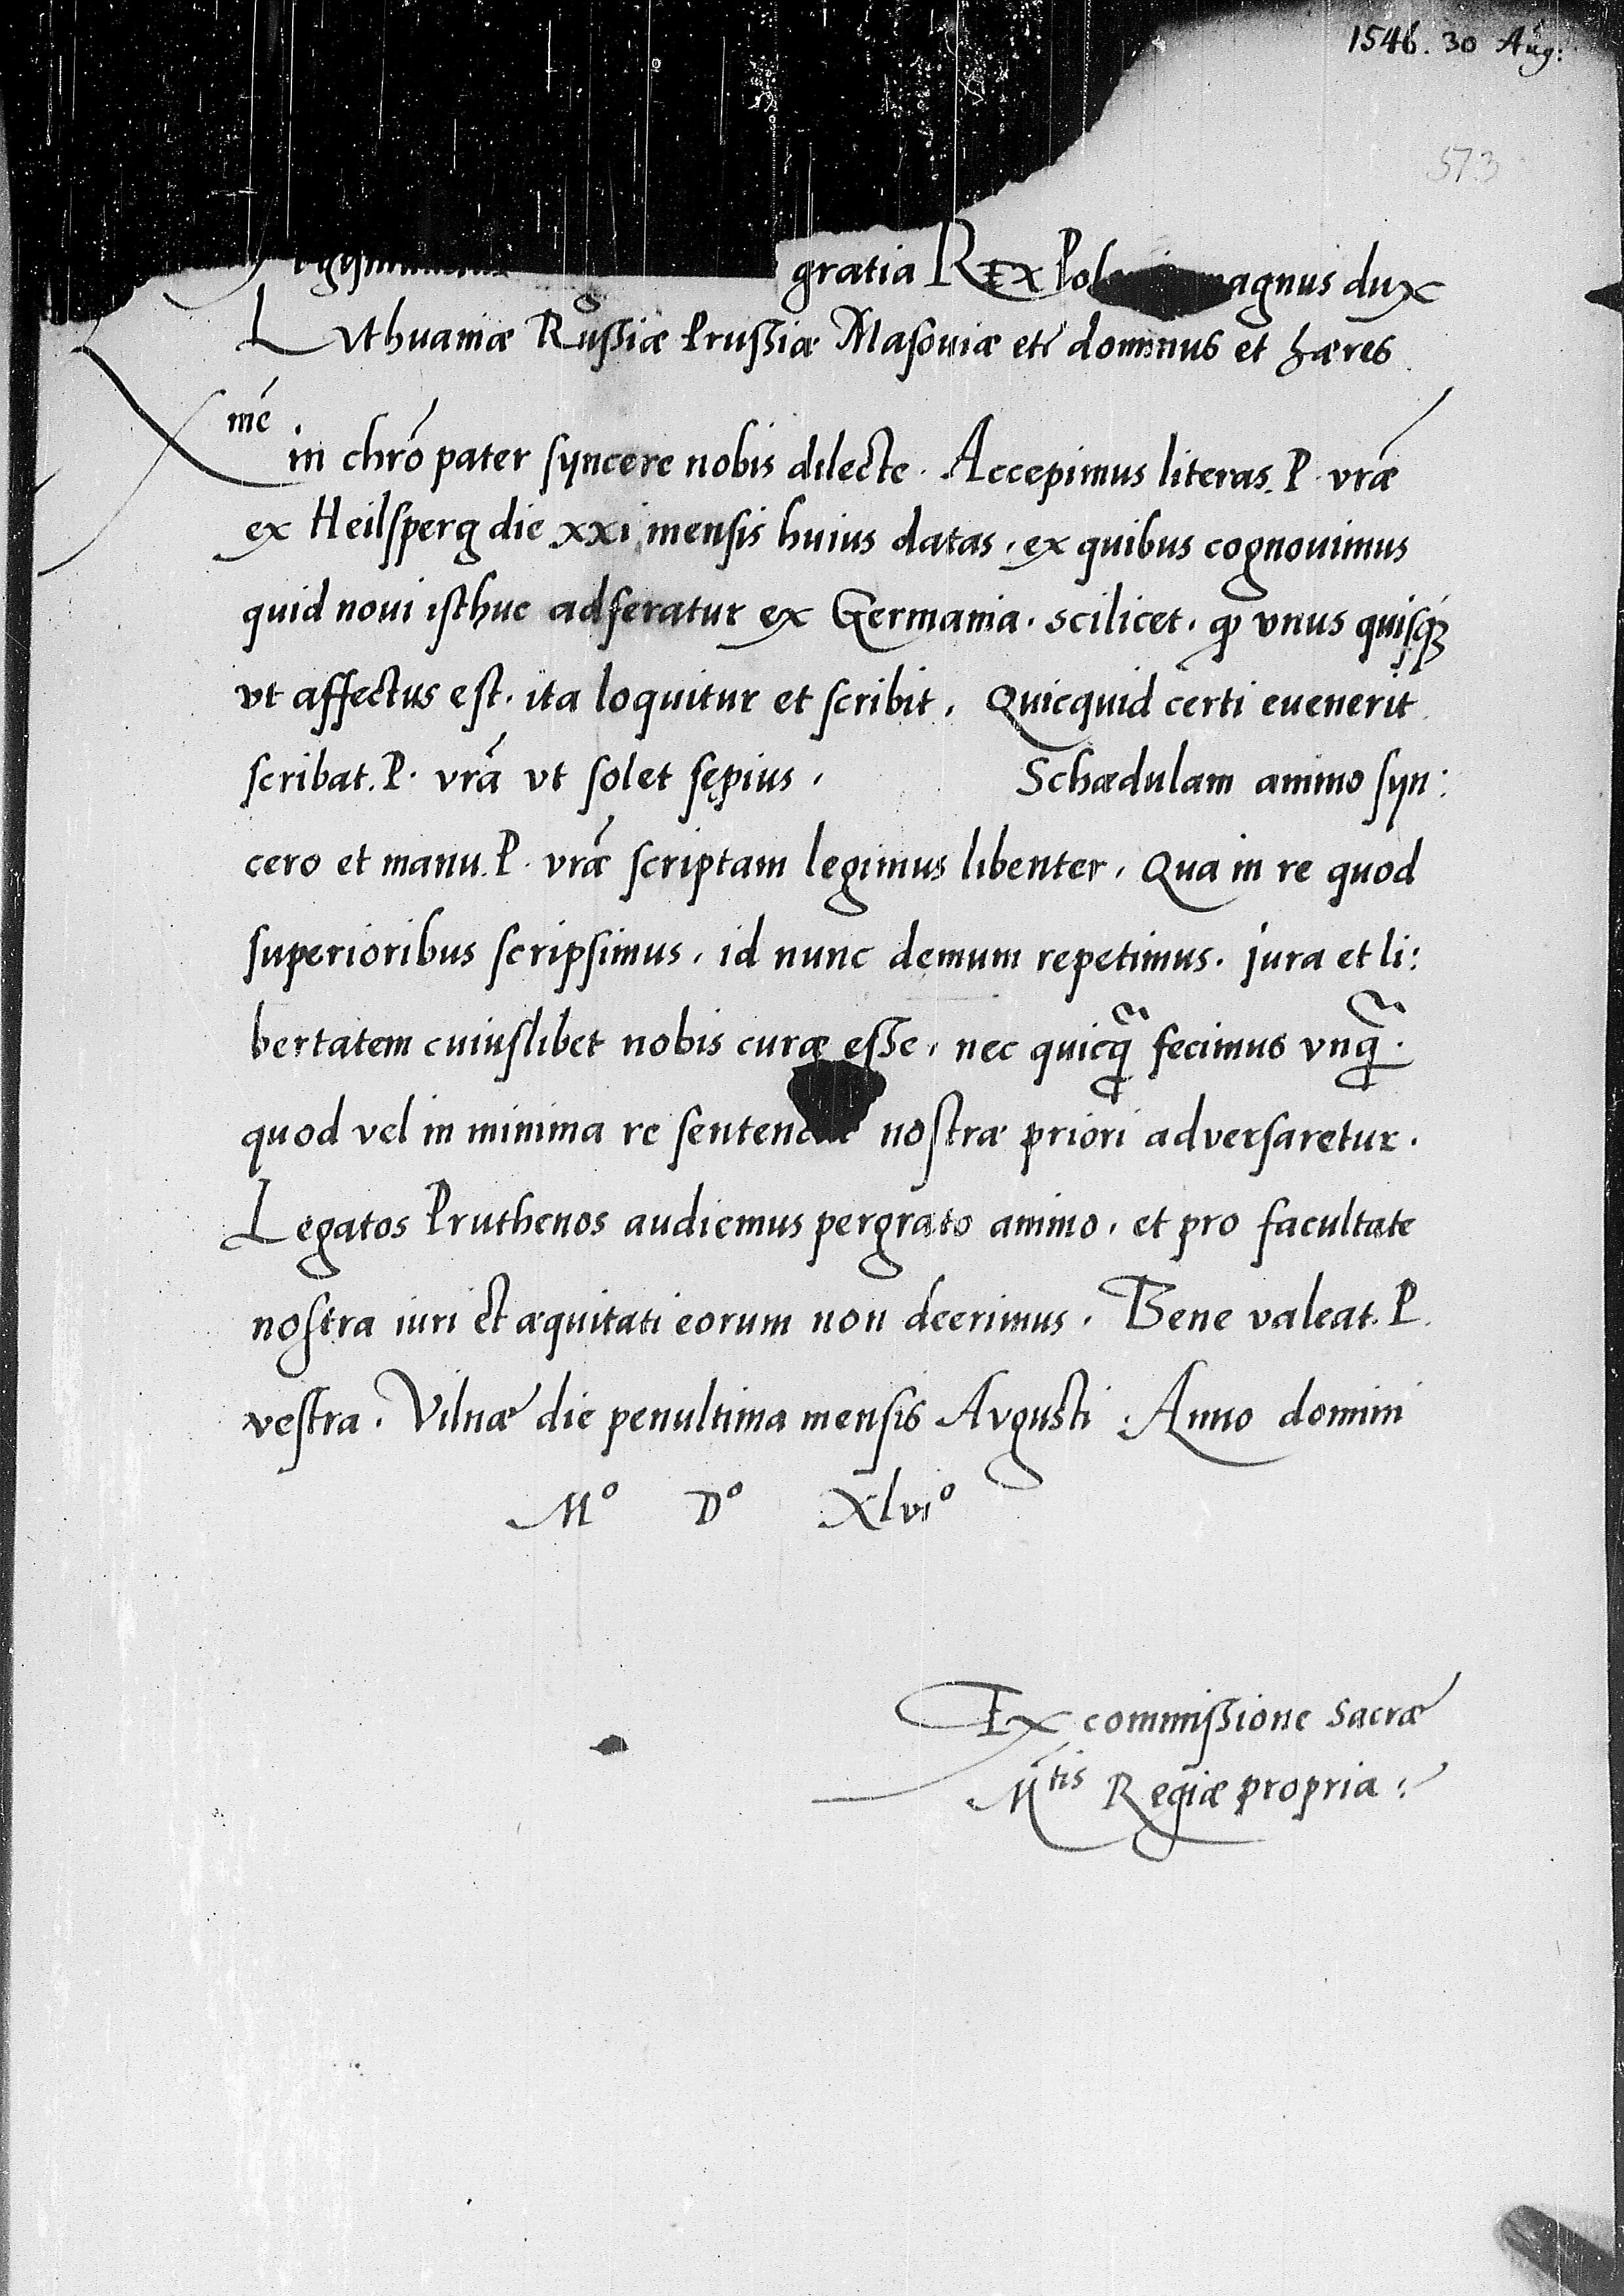 1546. 30 Aug:
573
gratia REX Pol magnus dux
Lythuaniæ Russiæ Prussiæ Masouiæ etc dominus et hæres
Rme in chrõ pater syncere nobis dilecte. Accepimus literas. P. vræ
ex Heilsperg die xxi mensis huius datas, ex quibus cognouimus
quid noui isthuc adferatur ex Germania. scilicet. ꝙ vnus quisq₃
vt affectus est. ita loquitur et scribit. Quicquid certi euenerit
scribat. P. vrã vt solet sępius. Schædulam animo syn:
cero et manu. P. vræ scriptam legimus libenter, Qua in re quod
superioribus scripsimus, id nunc demum repetimus. jura et li:
bertatem cuiuslibet nobis curæ esse, nec quicq̃ fecimus vnq̃.
quod vel in minima re sentenciæ nostræ priori adversaretur.
Legatos Pruthenos audiemus pergrato animo, et pro facultate
nostra iuri et æquitati eorum non deerimus. Bene valeat. P.
vestra. Vilnæ die penultima mensis Avgusti. Anno domini
Mº Dº Xlviº
Ex commissione Sacræ
Mtis Regiæ propria.